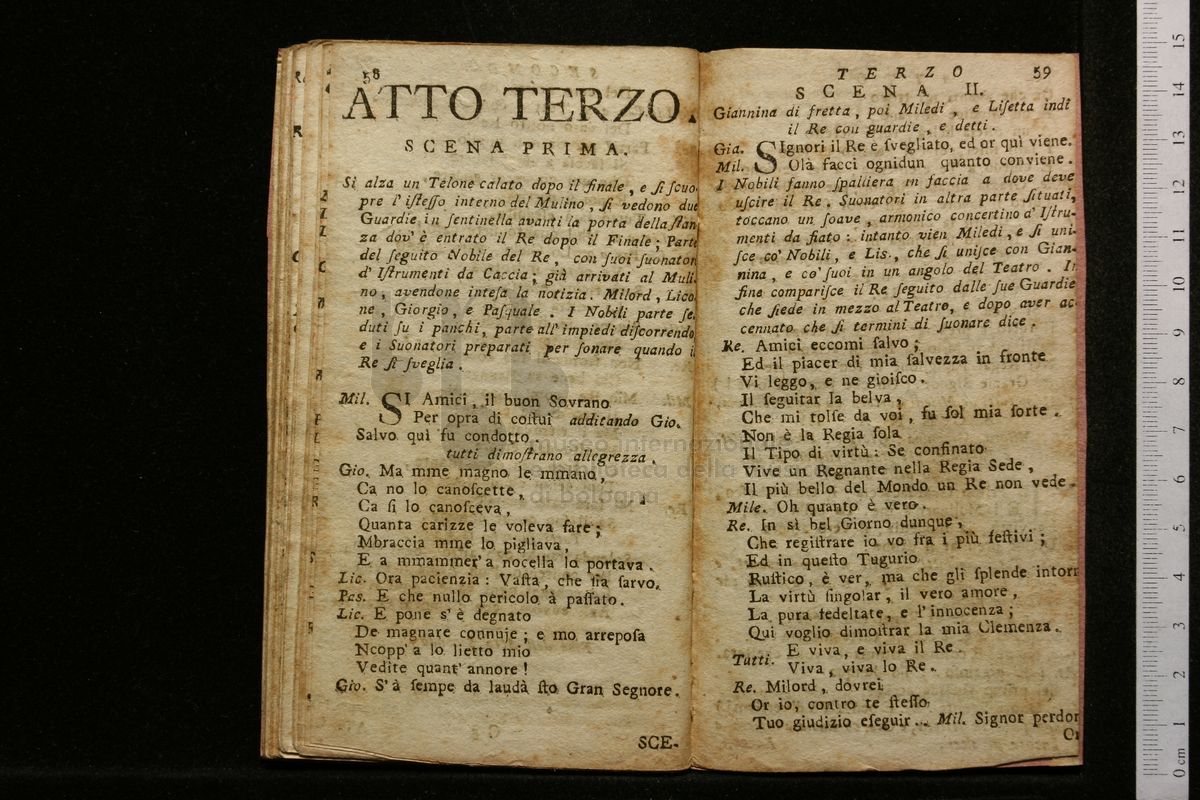 58
ATTO TERZO.
SCENA PRIMA.
Si alza un Telone calato dopo il finale, e ſi ſcuo-
pre l' iſteſſo interno del Mulino, ſi vedono due
Guardie in ſentinella avanti la porta della ſtan-
za dov' è entrato il Re dopo il Finale; Parte
del ſeguito Nobile del Re, con ſuoi ſuonatori
d' Iſtrumenti da Caccia; già arrivati al Muli-
no, avendone inteſa la notizia. Milord, Lico-
ne, Giorgio, e Paſquale. I Nobili parte ſe-
duti ſu i panchi, parte all' impiedi diſcorrendo,
e i Suonatori preparati per ſonare quando il
Re ſi ſveglia.
Mil. SI Amici, il buon Sovrano
Per opra di coſtui additando Gio.
Salvo quì fu condotto.
tutti dimoſtrano allegrezza.
Gio. Ma mme magno le mmano,
Ca no lo canoſcette,
Ca ſi lo canoſceva,
Quanta carizze le voleva fare;
Mbraccia mme lo pigliava,
E a mmammer' a nocella lo portava.
Lic. Ora pacienzia: Vaſta, che ſia ſarvo.
Pas. E che nullo pericolo à paſſato.
Lic. E pone s' è degnato
De magnare connuje; e mo arrepoſa
Ncopp' a lo lietto mio
Vedite quant' annore!
Gio. S' à ſempe da laudà ſto Gran Segnore.
SCE-
TERZO 59
SCENA II.
Giannina di fretta, poi Miledi, e Liſetta indi
il Re con guardie, e detti.
Gia. SIgnori il Re è ſvegliato, ed or quì viene.
Mil. Olà facci ognidun quanto conviene.
I Nobili fanno ſpalliera in faccia a dove deve
uſcire il Re. Suonatori in altra parte ſituati,
toccano un ſoave, armonico concertino d' Iſtru-
menti da fiato: intanto vien Miledi, e ſi uni-
ſce co' Nobili, e Lis., che ſi uniſce con Gian-
nina, e co' ſuoi in un angolo del Teatro. In
fine compariſce il Re ſeguito dalle ſue Guardie
che ſiede in mezzo al Teatro, e dopo aver ac-
cennato che ſi termini di ſuonare dice.
Re. Amici eccomi ſalvo;
Ed il piacer di mia ſalvezza in fronte
Vi leggo, e ne gioiſco.
Il ſeguitar la belva,
Che mi tolſe da voi, fu ſol mia ſorte.
Non è la Regia ſola
Il Tipo di virtù: Se confinato
Vive un Regnante nella Regia Sede,
Il più bello del Mondo un Re non vede.
Mile. Oh quanto è vero.
Re. In sì bel Giorno dunque,
Che regiſtrare io vo fra i più feſtivi;
Ed in queſto Tugurio
Ruſtico, è ver, ma che gli ſplende intorn
La virtù ſingolar, il vero amore,
La pura fedeltate, e l' innocenza;
Qui voglio dimoſtrar la mia Clemenza.
Tutti. E viva, e viva il Re.
Viva, viva lo Re.
Re. Milord, dovrei
Or io, contro te ſteſſo
Tuo giudizio eſeguir... Mil. Signor perdon
Or
museo internazionale
e biblioteca della
di bologna
0 cm 1 2 3 4 5 6 7 8 9 10 11 12 13 14 15